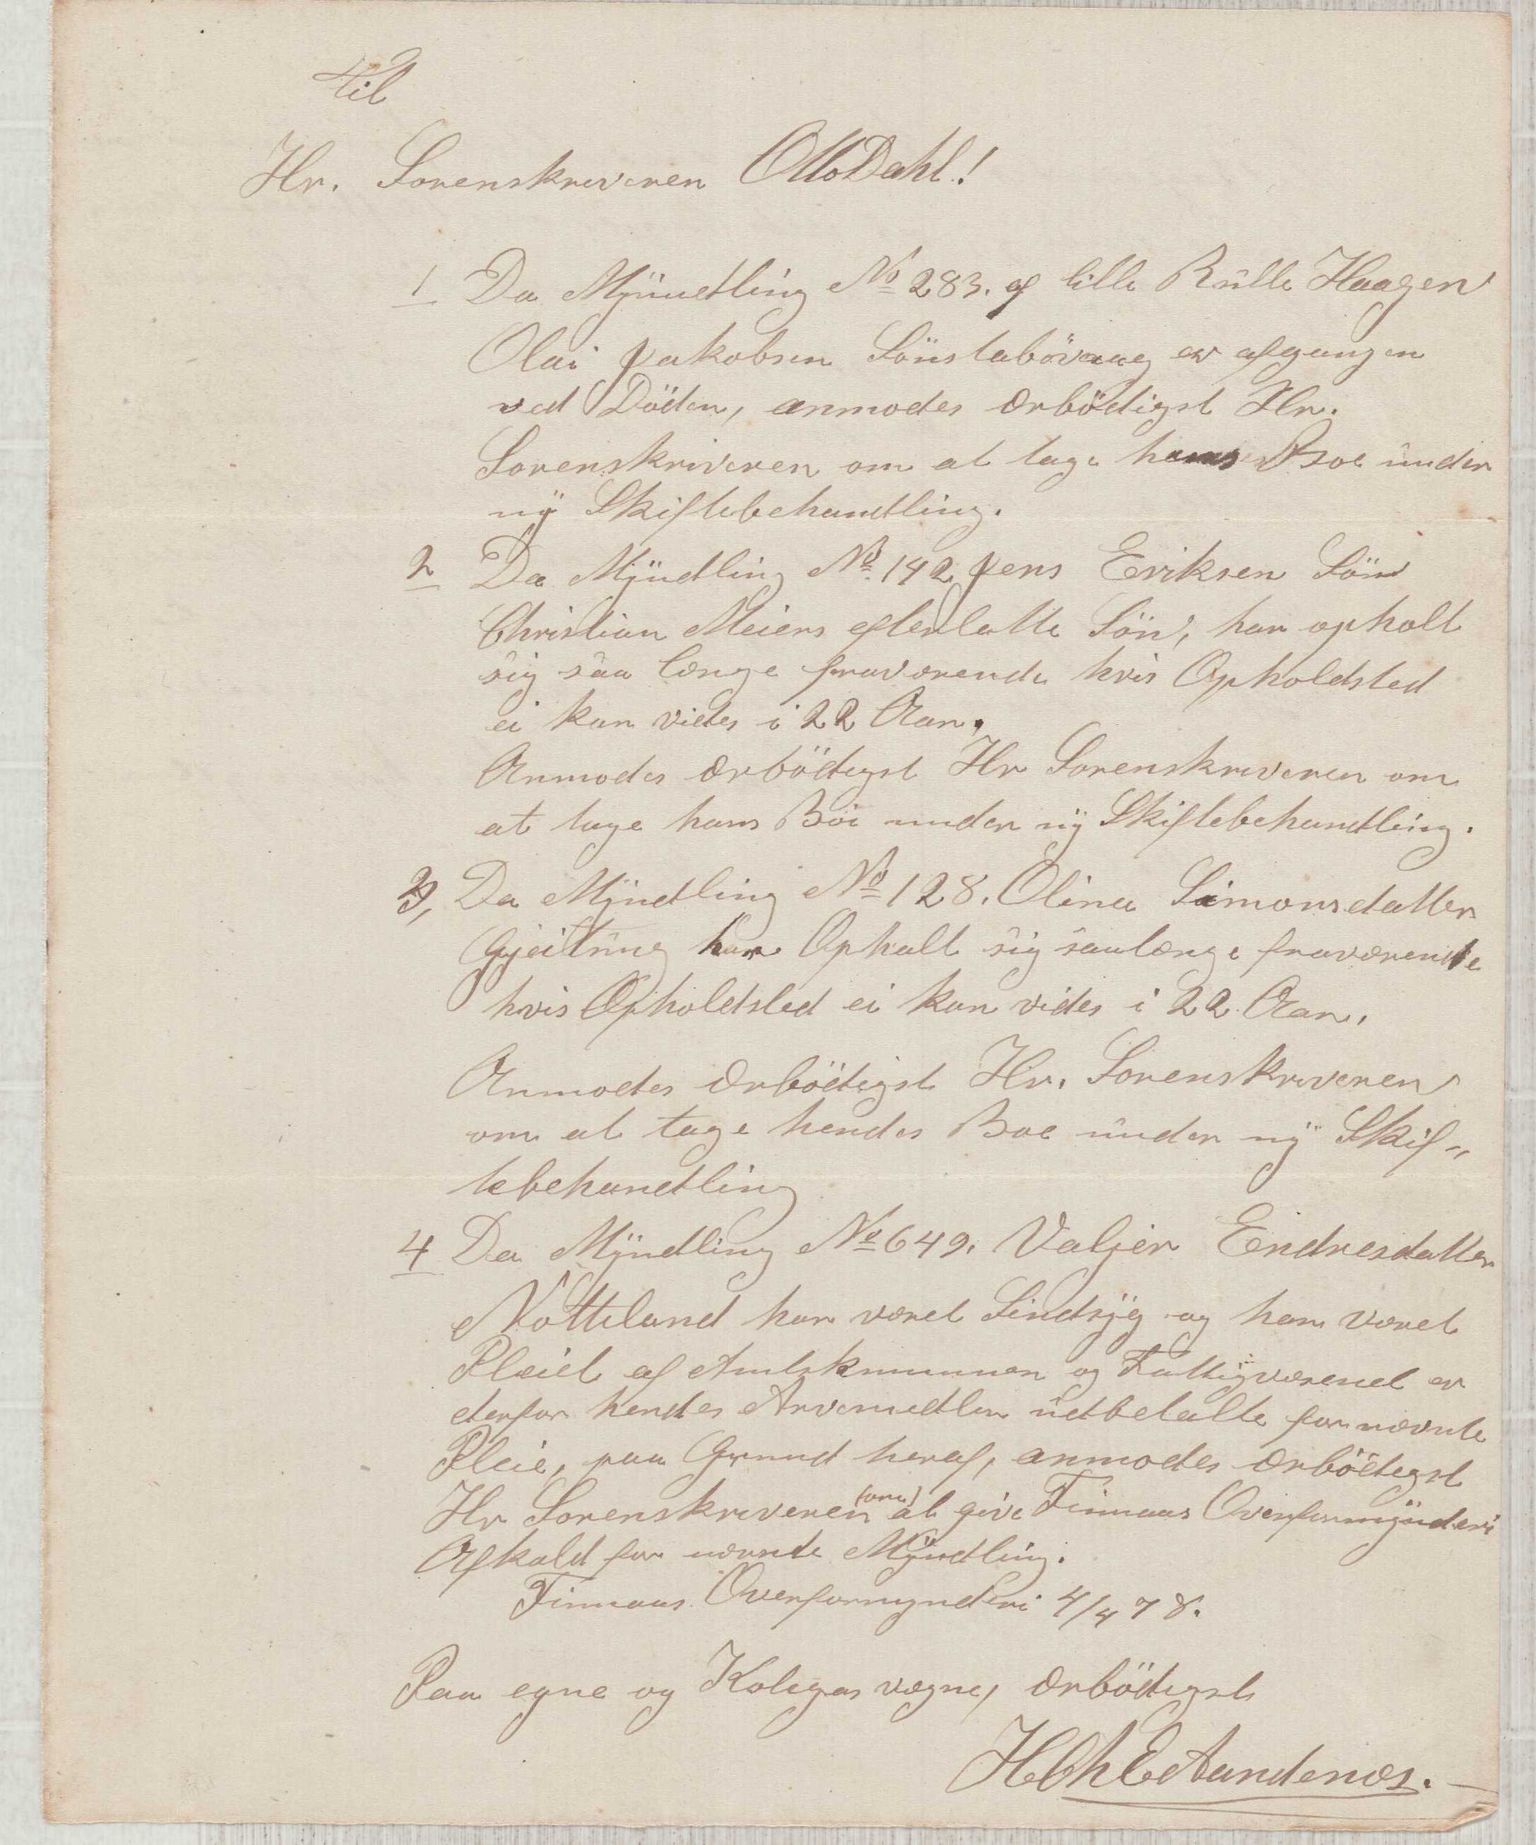 Til
Hr. Sorenskriveren Otto Dahl!
1 Da Myndtling No 283. af lille Rulle Haagen
Olai Jakobsen Sönstabövaag er afgangen
ved Döden, anmodes ærbödigst Hr.
Sorenskriveren om at tage hans Boe under
ny Skiftebehandling.
2 Da Myndling No 142 Jens Eriksen Sön
Christian Meiers efterlatte Sön, har opholt
sig saa længe fraværende hvis Opholdsted
ei kan vides i 22 Aar.
Anmodes ærbödigst Hr Sorenskriveren om
at tage hans Boe under ny Skiftebehandling.
3, Da Myndling No 128. Olina Simonsdatter
Gjeitung har Ophalt sig saalænge fraværende
hvis Opholdsted ei kan vides i 22 Aar.
Anmodes ærbödigst Hr. Sorenskriveren
om at tage hendes Boe under ny Skif-
tebehandling
4 Da Myndling No 649. Valjer Endresdatter
Nötteland har været Sindsyg og har været
Pleiet af Amtskmunnen og Fattigvæsenet er
derfor hendes Arvemidler udbetalte for nævnte
Pleie, paa Grund heraf, anmodes ærbödigst
Hr Sorenskriveren (om) at give Finnaas Overformynderi
Afkald for nævnte Myndling.
Finnaas Overformynderi 4/4 78.
Paa egne og Kolegas vegne, ærbödigst
H Ch E Aandenæs.